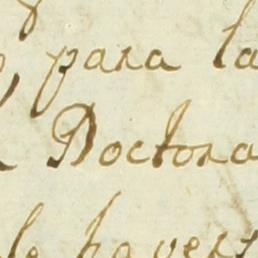 para la
Doctora
de havers